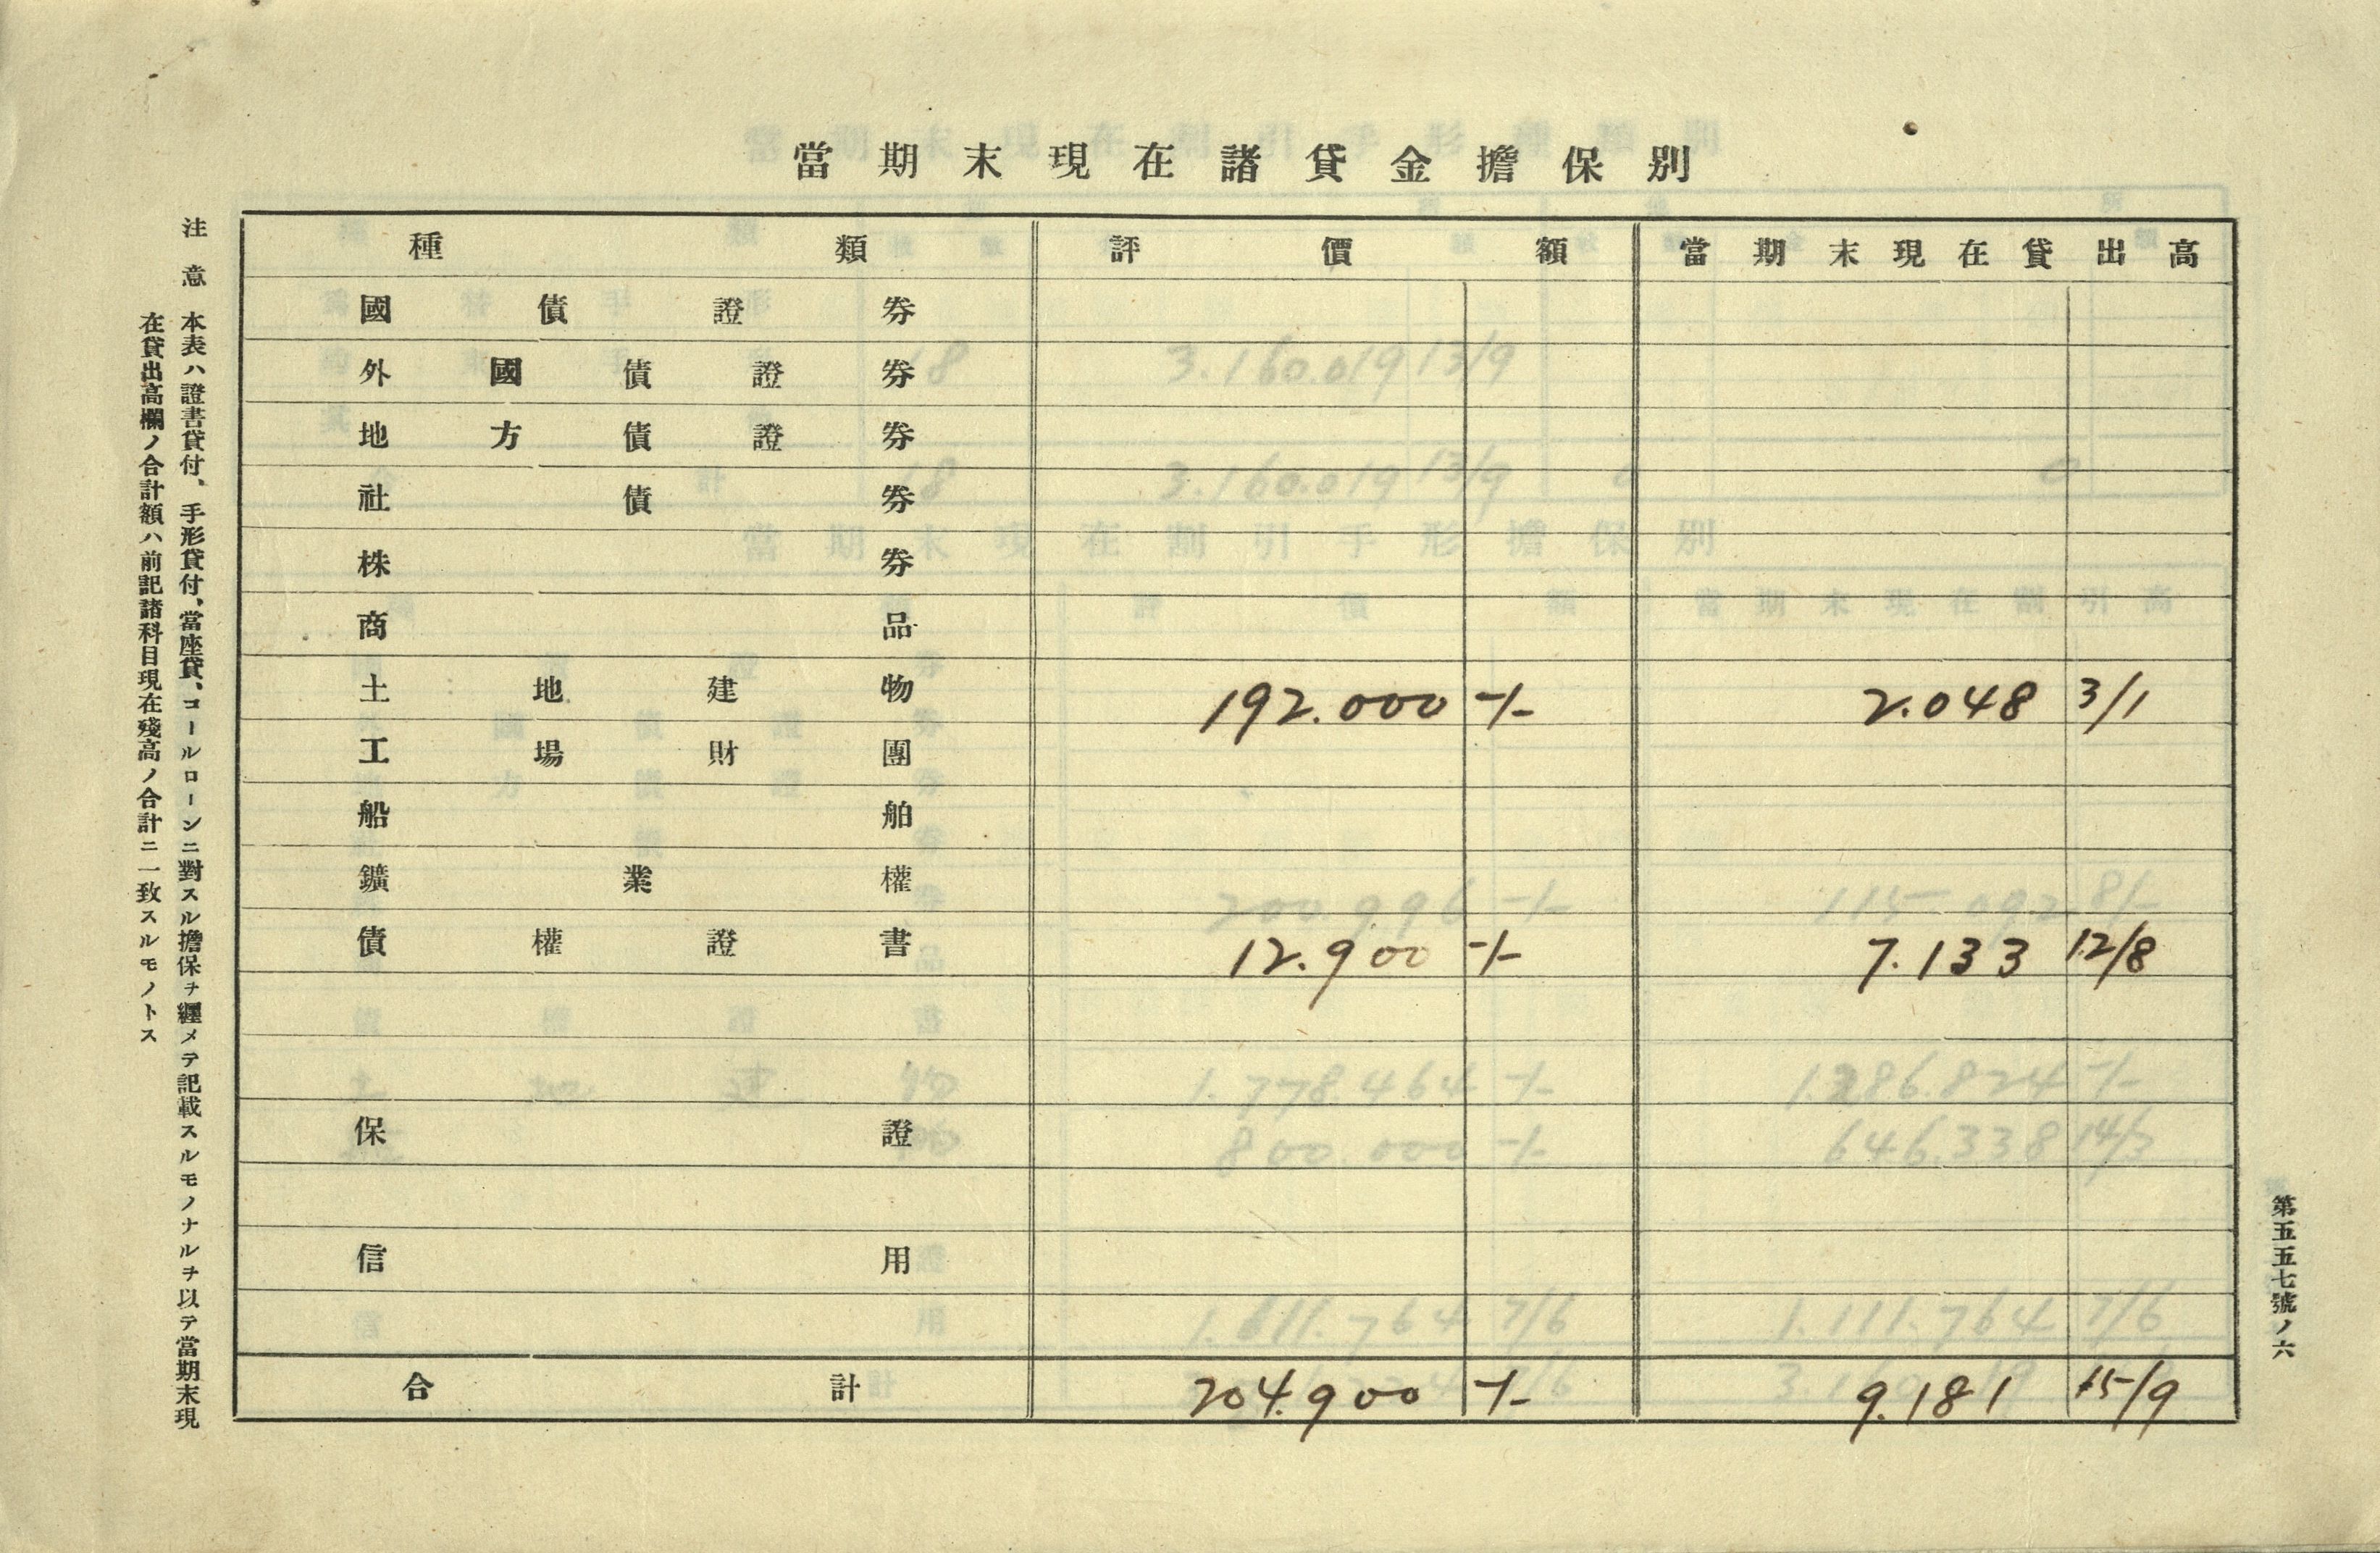 當期末現在諸貸金擔保別
種類 評價額 當期末現在貸出高
國債證券
外國債證券
地方債證券
社債券
株券
商品
土地建物 192.000 -/- 2.048 3/1
工場財團
船舶
鑛業權
債權證書 12.900 -/- 7.133 12/8
保證
信用
合計 204.900 -/- 9.181 15/9
第五五七號ノ六
注意 本表ハ證書貸付、手形貸付、當座貸、コールローンニ對スル擔保ヲ纒メテ記載スルモノナルヲ以テ當期末現
在貸出高欄ノ合計額ハ前記諸科目現在殘高ノ合計ニ一致スルモノトス